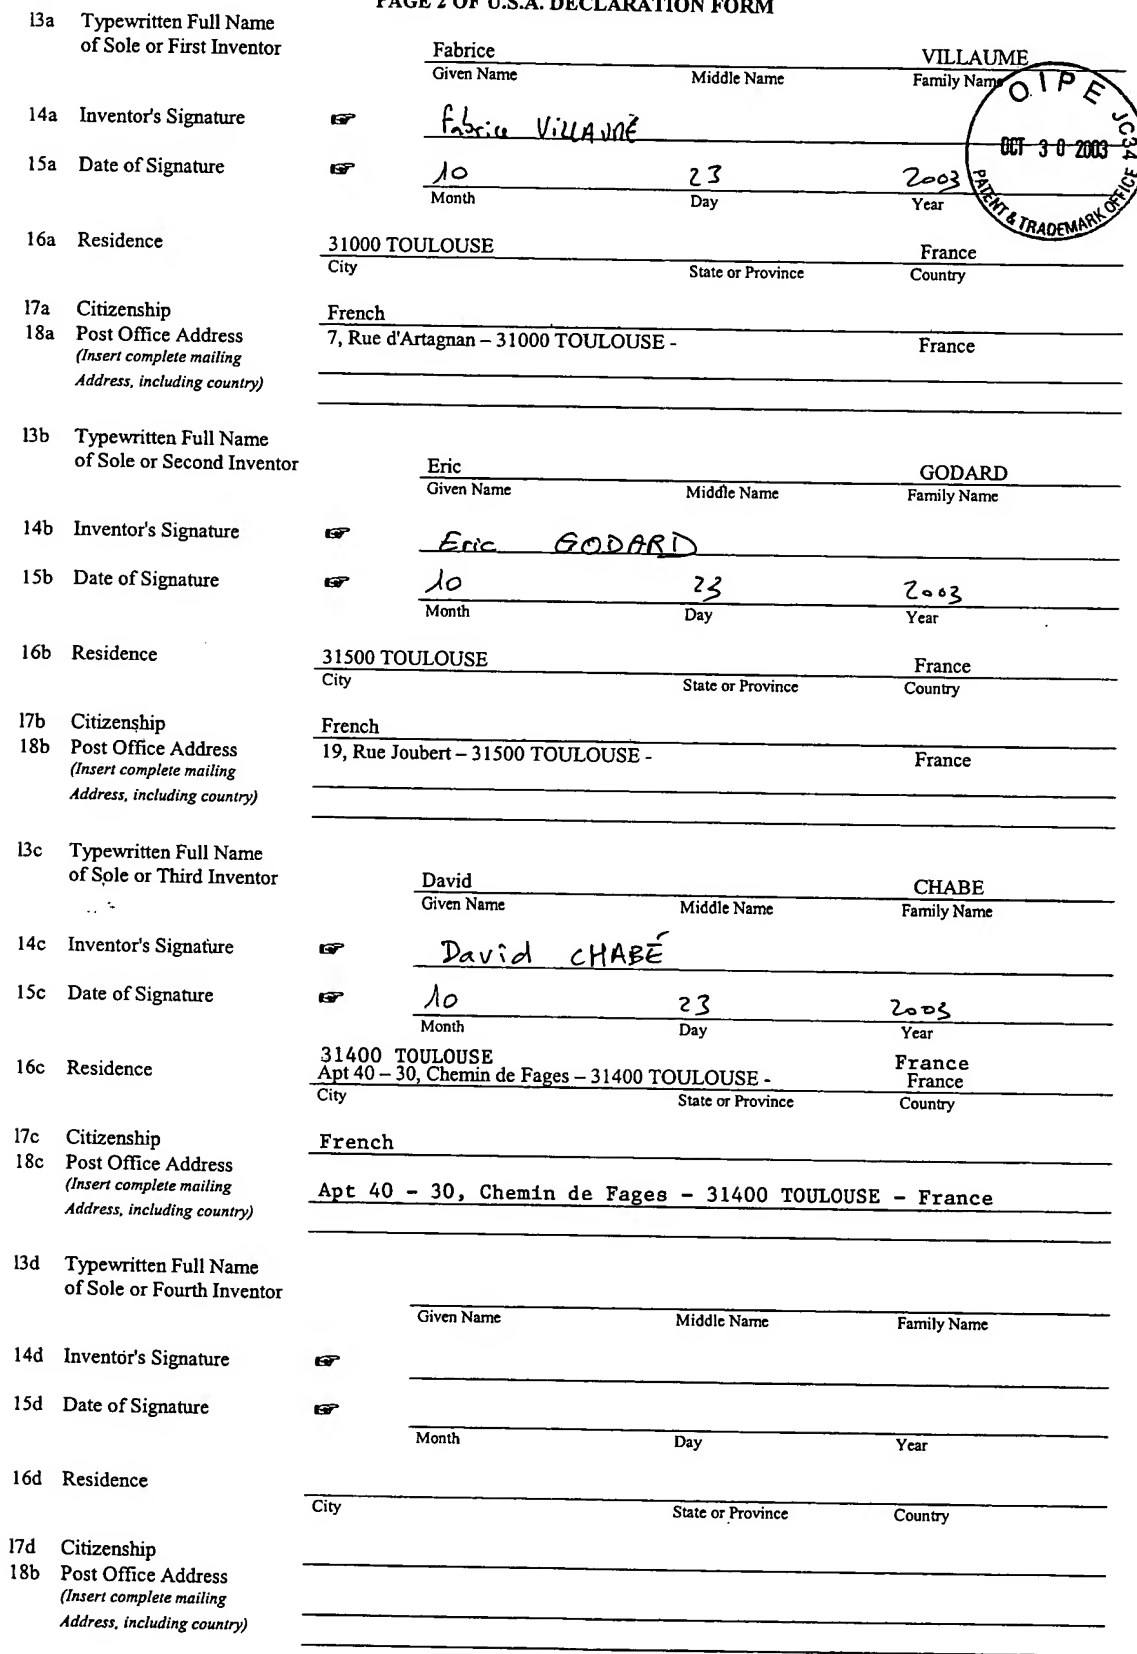 PAGE 2 OF U.S.A. DECLARATION FORM
13a Typewritten Full Name
of Sole or First Inventor
Fabrice VILLAUME
Given Name Middle Name Family Name
O I P E JC34
OCT 30 2003
PATENT & TRADEMARK OFFICE
14a Inventor's Signature ☞ Fabrice VILLAUME
15a Date of Signature ☞ 10 23 2003
Month Day Year
16a Residence 31000 TOULOUSE France
City State or Province Country
17a Citizenship French
18a Post Office Address 7, Rue d'Artagnan – 31000 TOULOUSE - France
(Insert complete mailing
Address, including country)
13b Typewritten Full Name
of Sole or Second Inventor
Eric GODARD
Given Name Middle Name Family Name
14b Inventor's Signature ☞ Eric GODARD
15b Date of Signature ☞ 10 23 2003
Month Day Year
16b Residence 31500 TOULOUSE France
City State or Province Country
17b Citizenship French
18b Post Office Address 19, Rue Joubert – 31500 TOULOUSE - France
(Insert complete mailing
Address, including country)
13c Typewritten Full Name
of Sole or Third Inventor
David CHABE
Given Name Middle Name Family Name
14c Inventor's Signature ☞ David CHABÉ
15c Date of Signature ☞ 10 23 2003
Month Day Year
31400 TOULOUSE France
16c Residence Apt 40 – 30, Chemin de Fages – 31400 TOULOUSE - France
City State or Province Country
17c Citizenship French
18c Post Office Address
(Insert complete mailing
Address, including country)
Apt 40 - 30, Chemin de Fages - 31400 TOULOUSE - France
13d Typewritten Full Name
of Sole or Fourth Inventor
Given Name Middle Name Family Name
14d Inventor's Signature ☞
15d Date of Signature ☞
Month Day Year
16d Residence
City State or Province Country
17d Citizenship
18b Post Office Address
(Insert complete mailing
Address, including country)